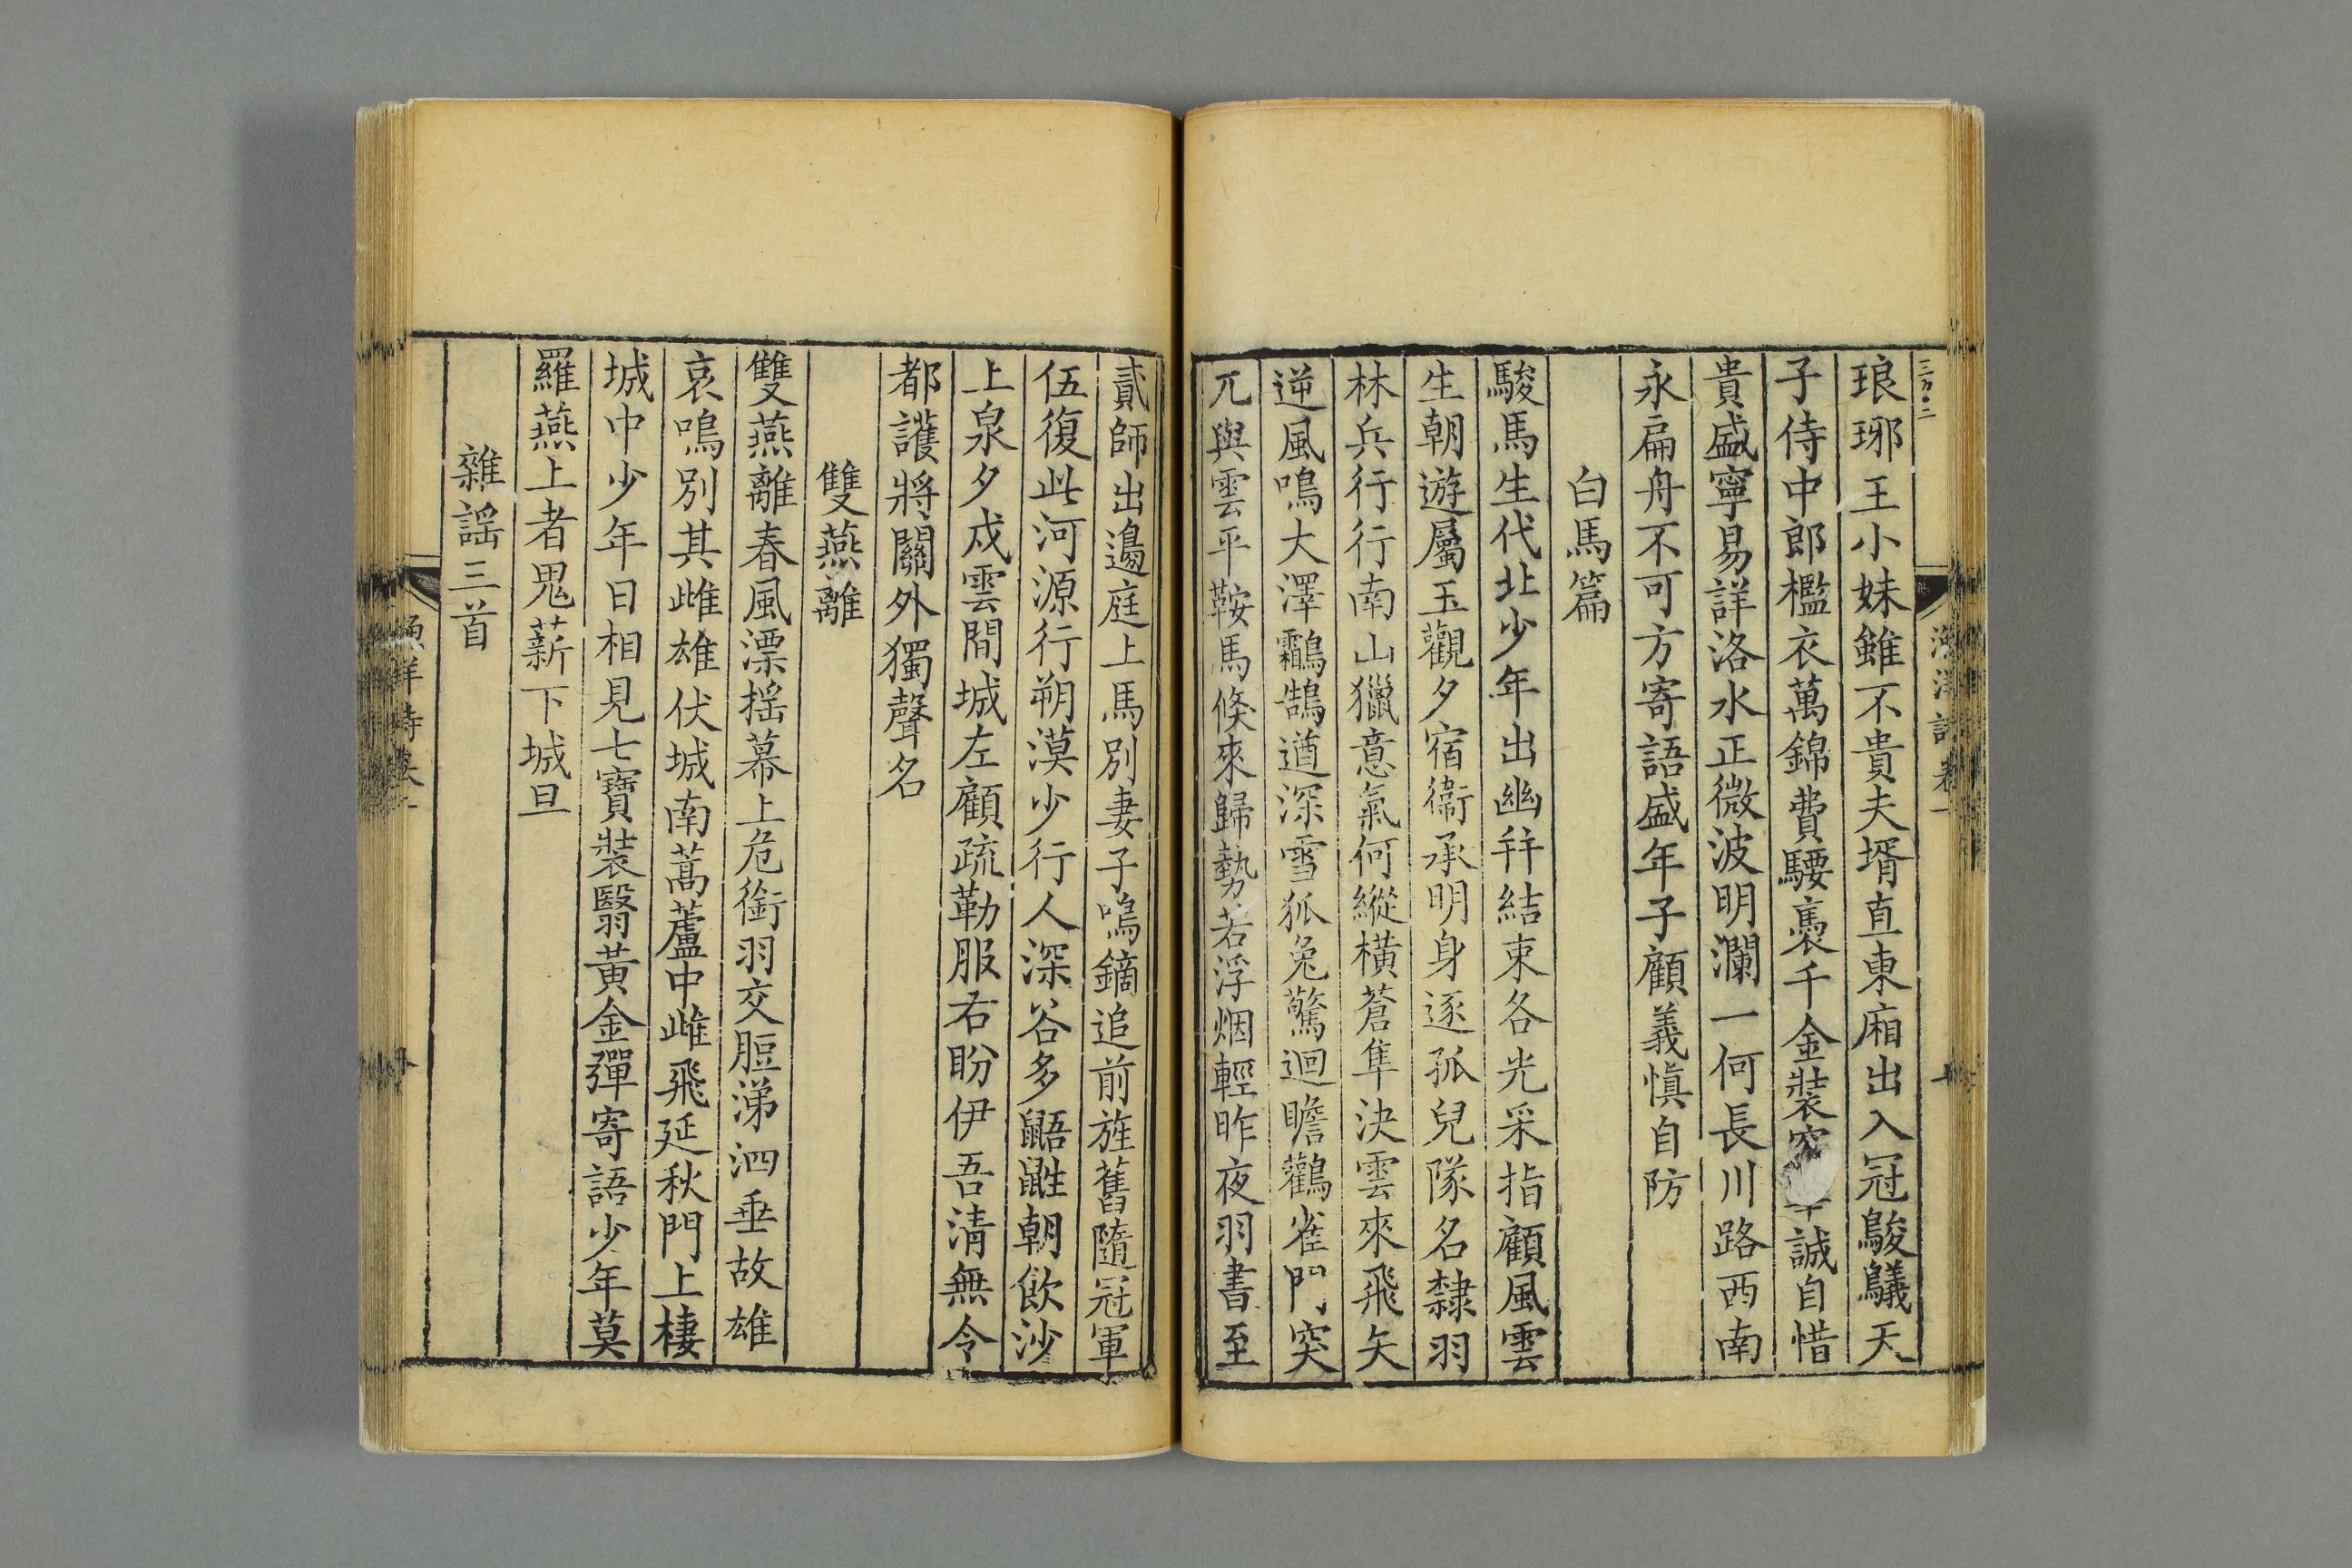 三百二
琅琊王小妹雖不貴夫壻直東廂出入冠鵔鸃天
子侍中郎襤衣萬錦費騕褭千金裝誠自惜
貴盛寧易詳洛水正微波明瀾一何長川路西南
永扁舟不可方寄語盛年子顧義愼自防
白馬篇
駿馬生代北少年出幽幷結束各光采指顧風雲
生朝遊屬玉觀夕宿衞承明身逐孤兒隊名隸羽
林兵行行南山獵意氣何縱橫蒼隼決雲來飛矢
逆風鳴大澤鸘鵠遒深雪狐兔驚迴瞻鸛雀門突
兀與雲平鞍馬倏來歸勢若浮烟輕昨夜羽書至
貳師出邊庭上馬別妻子鳴鏑追前旌舊隨冠軍
伍復此河源行朔漠少行人深谷多鼯鼪朝飮沙
上泉夕戍雲間城左顧疏勒服右盼伊吾淸無令
都護將關外獨聲名
雙燕離
雙燕離春風漂揺幕上危銜羽交脰涕泗垂故雄
哀鳴別其雌雄伏城南蒿蘆中雌飛延秋門上棲
城中少年日相見七寶裝翳黃金彈寄語少年莫
羅燕上者鬼薪下城旦
雜謡三首